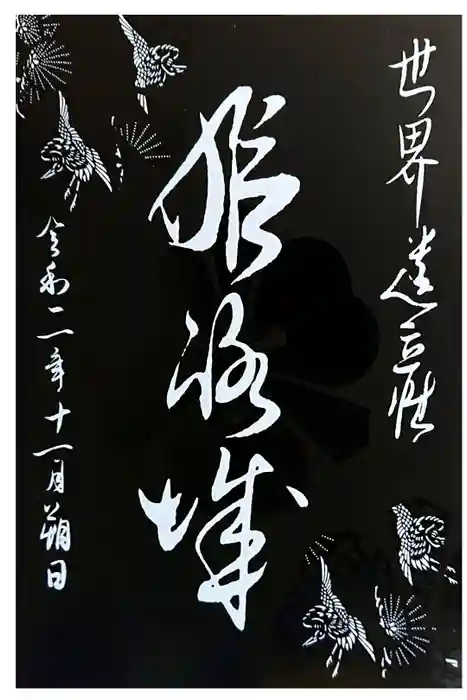 世界遺産
姫路城
令和二年十一月朔日